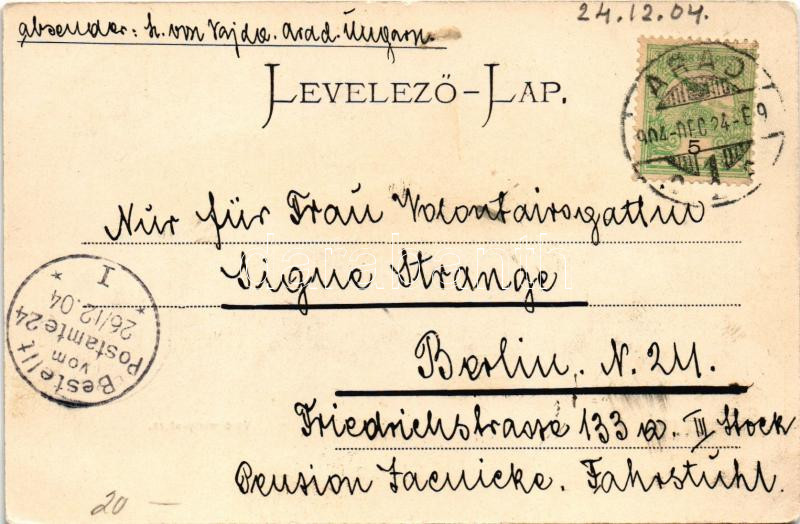 24.12.04.
absender: h. von Vajda. Arad. Ungarn.
LEVELEZŐ-LAP.
ARAD
904-DEC 24-E 9
5
Nur für Frau Volontairsgattin
Signe Strange
Berlin. N. 24.
Friedrichstrasse 133 a. III Stock
Pension Jaenicke. Fahrstuhl.
Bestellt
vom
Postamte 24
26/12.04
* I *
darabanth
20 —